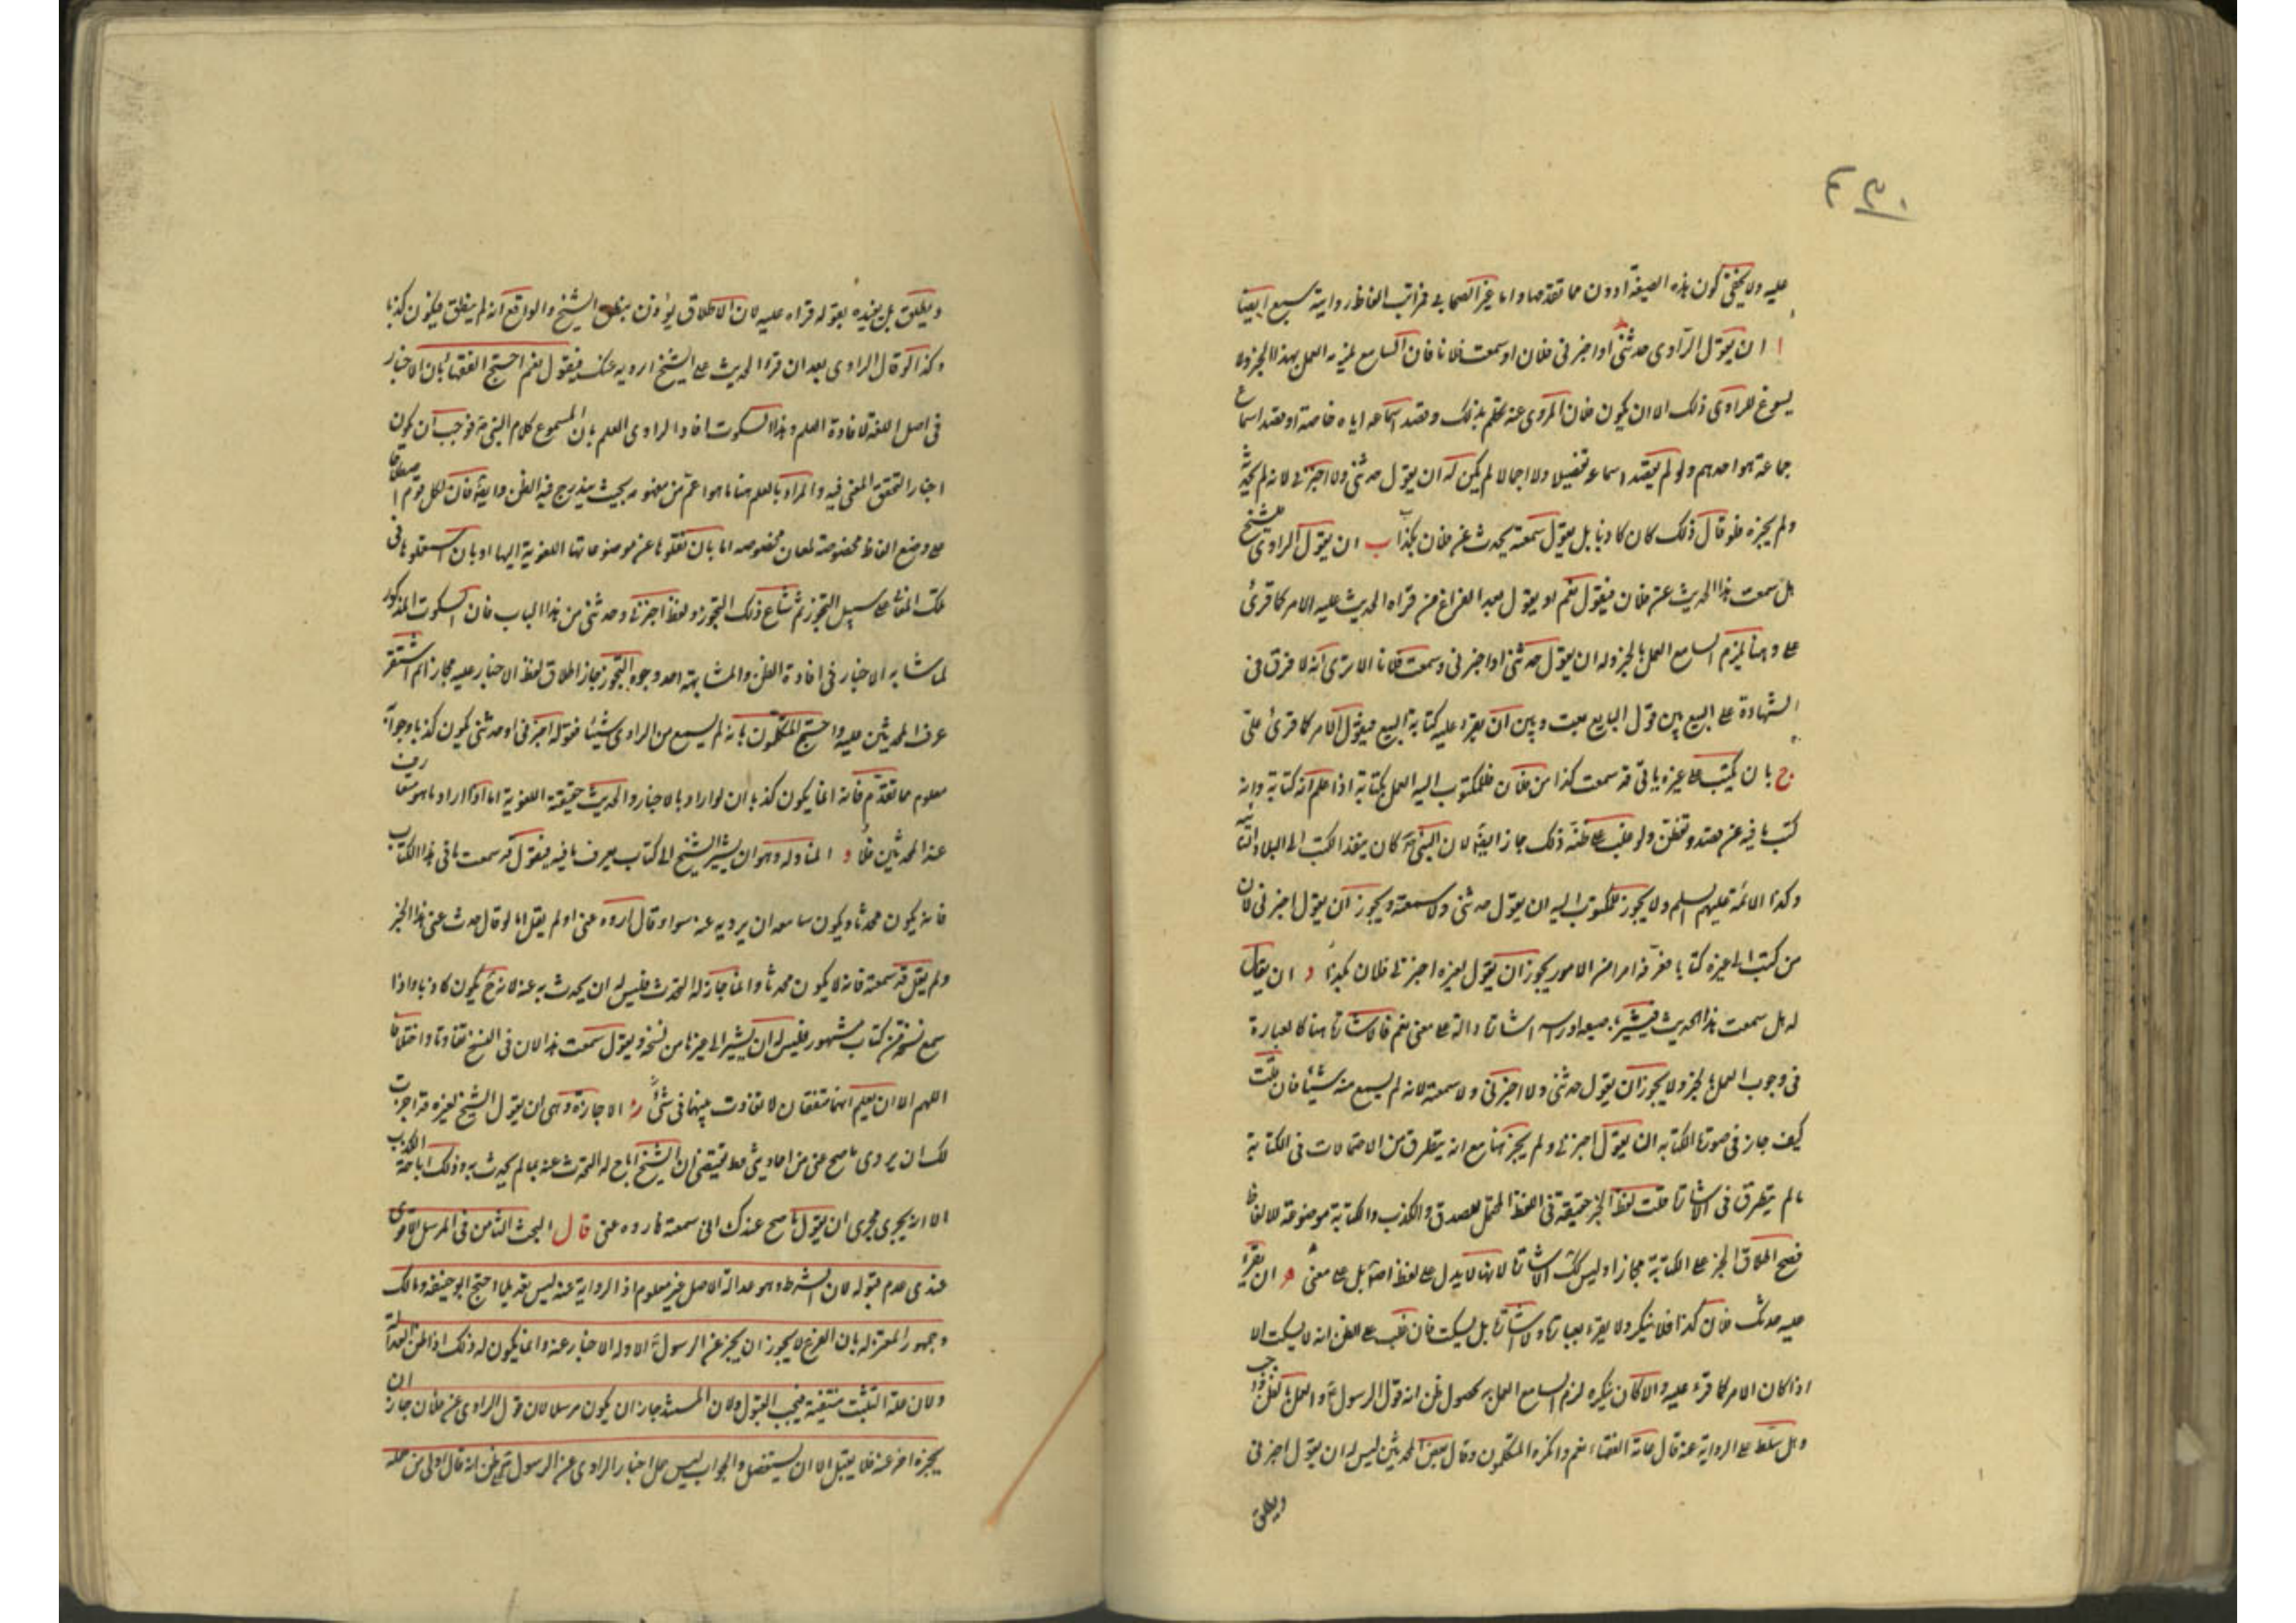 عليه ولا يخفى كون هذه الصيغة ادون مما تقدمها واما غير الصحابي فمراتب الفاظ روايته سبع ايضا
ا ان يقول الراوى حدثنى او اخبرنى فلان او سمعت فلانا فان السامع يلزمه العمل بهذا الخبر ولا
يسوغ للراوى ذلك الا ان يكون فلان المروى عنه تكلم بذلك وقصد اسماعه اياه خاصة او قصد اسماع
جماعة هو احدهم ولو لم يقصد اسماعه تفصيلا ولا اجمالا لم يكن له ان يقول حدثنى ولا اخبرنى لانه لم يحدثه
ولم يخبره فلو قال ذلك كان كاذبا بل يقول سمعته يحدث عن فلان بكذا ب ان يقول الراوى للشيخ
هل سمعت هذا الحديث عن فلان فيقول نعم او يقول بعد الفراغ من قراءة الحديث عليه الامر كما قرئ
على وهنا يلزم السامع العمل بالخبر وله ان يقول حدثنى او اخبرنى وسمعت فلانا الا ترى انه لا فرق فى
الشهادة على البيع بين قول البايع بعت وبين ان يقرء عليه كتابة البيع فيقول الامر كما قرئ على
ج بان يكتب على غيره بانى قد سمعت كذا من فلان فللمكتوب اليه العمل بكتابة اذا علم انه كتابة وانه
كتب ما فيه عن قصد وتفطن ولو غلب على ظنه ذلك جاز ايضا لان النبى كان ينفذ الكتب الى البلاد
وكذا الائمة عليهم السلم ولا يجوز للمكتوب اليه ان يقول حدثنى ولا سمعته ويجوز ان يقول اخبرنى لان
من كتب الى غيره كتابا معرفه امرا من الامور يجوز ان يقول لغيره اخبرنى فلان بكذا د ان يقال
له هل سمعت هذا الحديث فيشير باصبعه او راسه اشارة دالة على معنى نعم فالاشارة هنا كالعبارة
فى وجوب العمل بالخبر ولا يجوز ان يقول حدثنى ولا اخبرنى ولا سمعته لانه لم يسمع منه شيئا فان قلت
كيف جاز فى صورة الكتابه ان يقول اخبرنى ولم يجز هنا مع انه يتطرق من الاحتمالات فى الكتابة
ما لم يتطرق فى الاشارة قلت لفظ الخبر حقيقة فى اللفظ المحتمل للصدق والكذب والكتابة موضوعة للالفاظ
فصح اطلاق الخبر على الكتابة مجازا وليس كك الاشارة لانها لا يدل على لفظ اصلا بل على معنى ه ان يقرء
عليه حدثك فلان كذا فلا ينكر ولا يقر بعبارة ولا اشارة بل يسكت فان غلب على الظن انه لا يسكت الا
اذا كان الامر كما قرء عليه والا كان ينكره لزم السامع العمل به لحصول ظن انه قول الرسول والعمل بالظن واجب
وهل يتسلط على الرواية عنه قال عامة الفقهاء نعم وانكره المتكلمون وقال بعض المحدثين ليس له ان يقول اخبرنى
ويطلق
ويطلق بل يقيده بقوله قراءة عليه لان الاطلاق يؤذن بنطق الشيخ والواقع انه لم ينطق فيكون كذبا
وكذا لو قال الراوى بعد ان قرء الحديث على الشيخ ارويه عنك فيقول نعم احتج الفقهاء بان الاخبار
فى اصل اللغة لافادة العلم وهذا السكوت افاد الراوى العلم بان المسموع كلام النبى فوجب ان يكون
اخبارا لتحقق المعنى فيه والمراد بالعلم هنا ما هو اعم من مفهومه بحيث يندرج فيه الظن وايضا فان لكل قوم اصطلاحا
على وضع الفاظ مخصوصة لمعان مخصوصه اما بان نقلوها عن موضوعاتها اللغوية اليها او بان استعملوها فى
تلك المعانى على سبيل التجوز ثم شاع ذلك التجوز ولفظ اخبرنى وحدثنى من هذا الباب فان السكوت المذكور
لما شابه الاخبار فى افادة الظن والمشابهة احد وجوه التجوز جاز اطلاق لفظ الاخبار عليه مجازا ثم استقر
عرف المحدثين عليه واحتج المتكلمون بانه لم يسمع من الراوى شيئا فقوله اخبرنى او حدثنى يكون كذبا وجوابه
معلوم مما تقدم فانه انما يكون كذبا ان لو اراد بالاخبار والحديث حقيقته اللغوية اما اذا اراد ما هو متعارف
عند المحدثين فلا و المناوله وهو ان يشير الشيخ الى كتاب يعرف ما فيه فيقول قد سمعت ما فى هذا الكتاب
فانه يكون محدثا ويكون سامعه ان يرويه عنه سواء قال اروه عنى او لم يقل اما لو قال حدث عنى هذا الخبر
ولم يقل قد سمعته فانه لا يكون محدثا وانما اجاز له التحدث فليس له ان يحدث به عنه لانه ح يكون كاذبا واذا
سمع نسخة من كتاب مشهور فليس له ان يشير الى غيرها من نسخه ويقول سمعت هذا لان فى النسخ تفاوتا واختلافا
اللهم الا ان يعلم انهما متفقان لا تفاوت بينهما فى شئ ز الاجازة وهى ان يقول الشيخ لغيره قد اجزت
لك ان يروى ما صح عنى من احاديثى فهو يقتضى ان الشيخ اباح له التحدث عنه بما لم يحدث به وذلك اباحة الكذب
الا انه يجرى مجرى ان يقول ما صح عندك انى سمعته فاروه عنى قال البحث الثامن فى المرسل الاقوى
عندى عدم قبوله لان الشرط وهو عدالة الاصل غير معلوم اذ الرواية عنه ليس تعديلا احتج ابو حنيفه ومالك
وجمهور المعتزله بان الفرع لا يجوز ان يخبر عن الرسول الا وله الاخبار عنه وانما يكون له ذلك اذا ظن العدالة
ولان علة التثبت منتفية فيجب القبول ولان المسند جاز ان يكون مرسلا لان قول الراوى عن فلان جاز ان
يخبره اخر عنه فلا يقبل الا ان يستفصل والجواب ليس حمل اخبار الراوى عن الرسول على ظن انه قال اولى من حمله